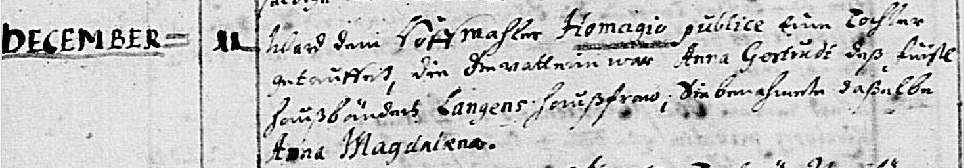 DECEMBER = 11 Ward dem Hoffmahler Homagio publice eine Tochter
getauffet, die Gevatterin war Anna Gertrudt deß fürstl
haußbänders Langens haußfraw, Sie benahmete daßelbe
Anna Magdalena.